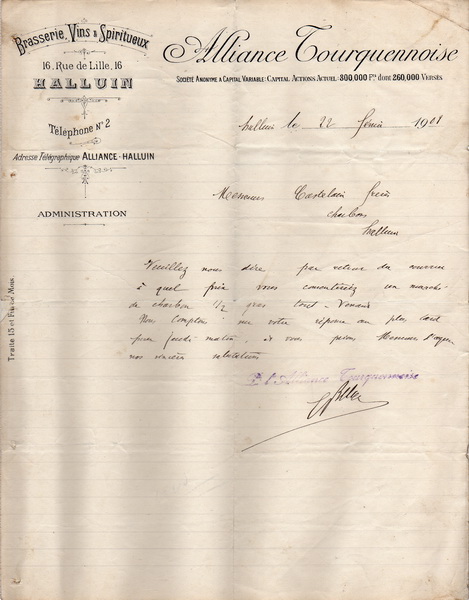 Brasserie, Vins & Spiritueux
16, Rue de Lille, 16
HALLUIN
Téléphone N° 2
Adresse Télégraphique ALLIANCE-HALLUIN
ADMINISTRATION
Alliance Tourquennoise
SOCIÉTÉ ANONYME A CAPITAL VARIABLE: CAPITAL ACTIONS ACTUEL 300,000 Frs dont 260,000 VERSÉS
Halluin le 22 février 1901
Messieurs Castelain frères
charbons
Halluin
Veuillez nous dire par retour du courrier
à quel prix vous un marché
de charbon 1/2 gras
Nous comptons sur votre réponse au plus tard
pour jeudi matin, & vous prions Messieurs d'agréer
nos sincères salutations
P. l'Alliance Tourquennoise
Traite 15 et Fin de Mois.